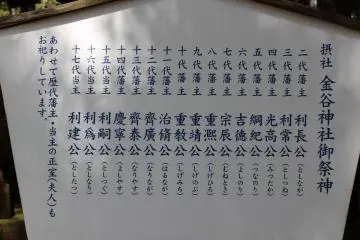 摂社 金谷神社御祭神
二代藩主 利長公(としなが)
三代藩主 利常公(としつね)
四代藩主 光高公(みつたか)
五代藩主 綱紀公(つなのり)
六代藩主 吉徳公(よしのり)
七代藩主 宗辰公(むねとき)
八代藩主 重熙公(しげひろ)
九代藩主 重靖公(しげのぶ)
十代藩主 重教公(しげみち)
十一代藩主 治脩公(はるなが)
十二代藩主 齊廣公(なりなが)
十三代藩主 齊泰公(なりやす)
十四代藩主 慶寧公(よしやす)
十五代当主 利嗣公(としつぐ)
十六代当主 利為公(としなり)
十七代当主 利建公(としたつ)
あわせて歴代藩主・当主の正室(夫人)も
お祀りしています。